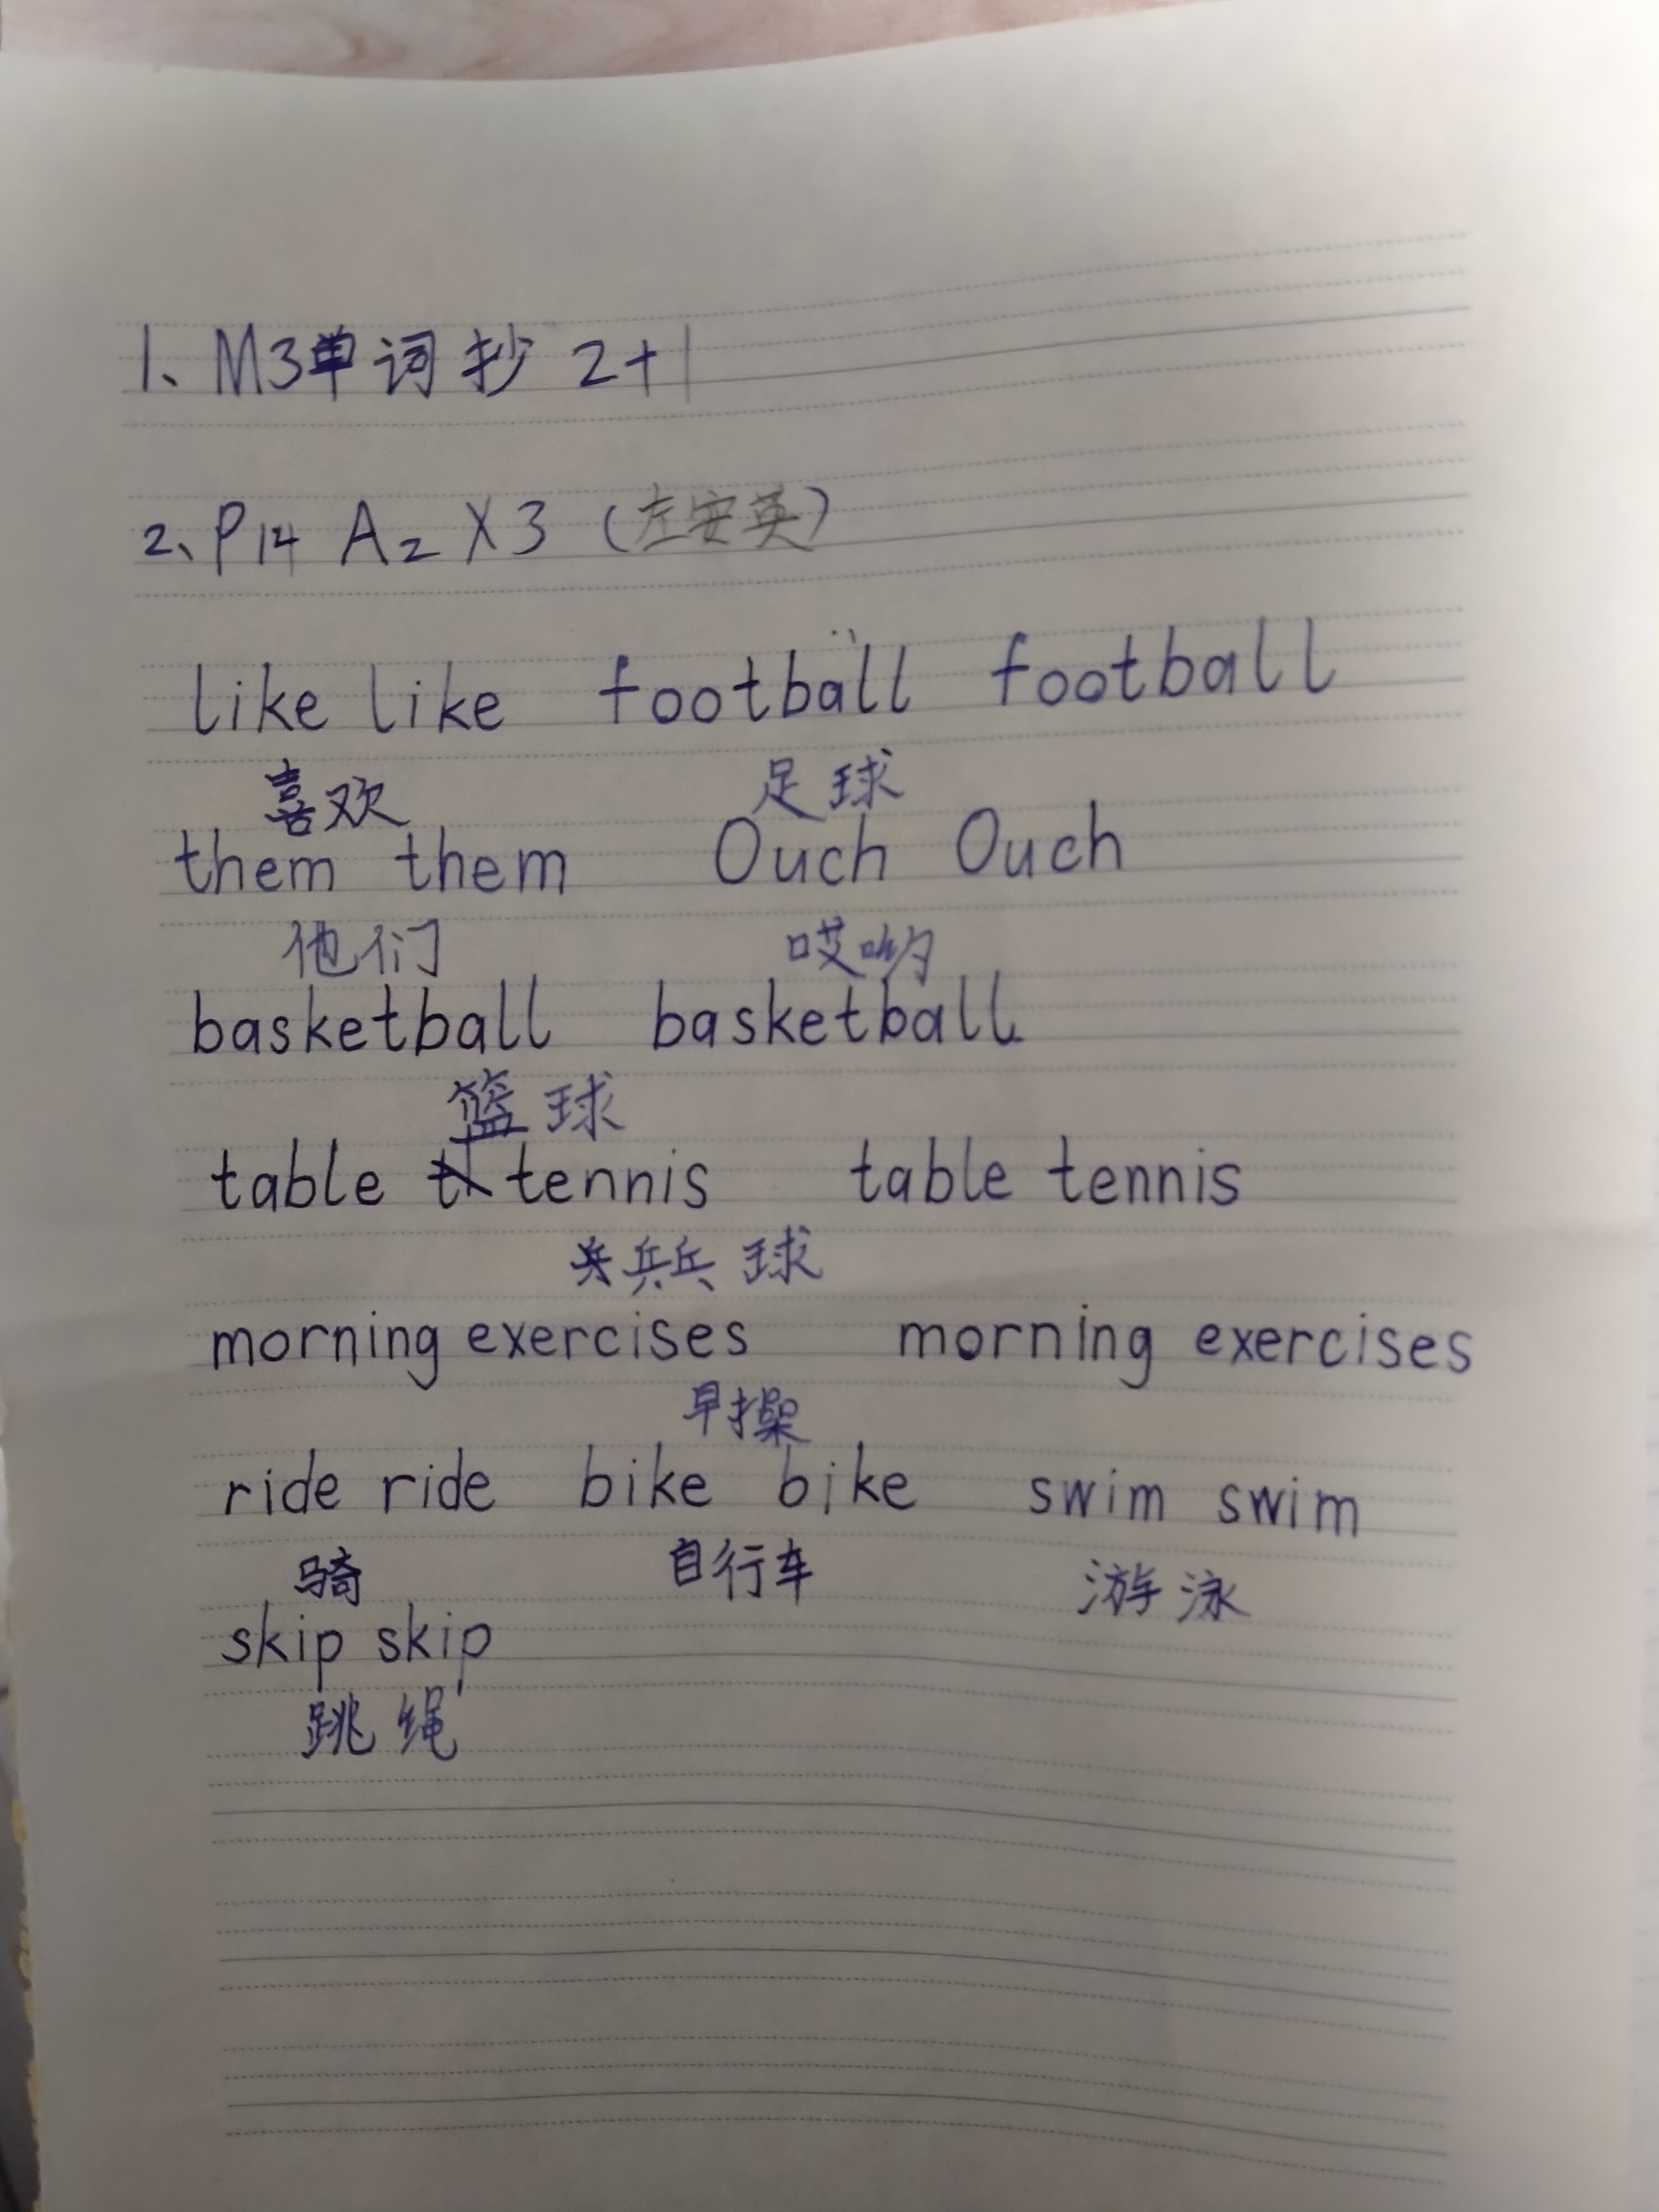 1、M3单词抄 2+1
2、P14 A2 X3 (左安英)
like like football football
喜欢 足球
them them Ouch Ouch
他们 哎哟
basketball basketball
篮球
table tennis table tennis
乒乓球
morning exercises morning exercises
早操
ride ride bike bike swim swim
骑 自行车 游泳
skip skip
跳绳